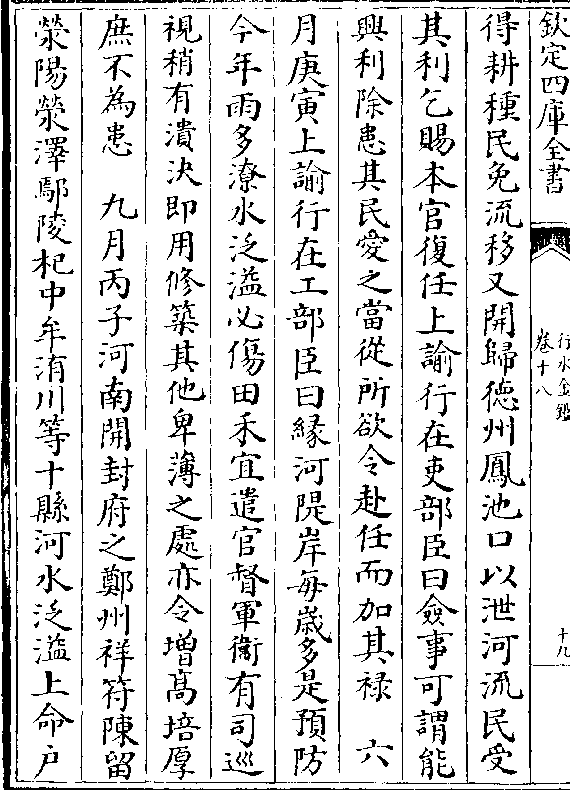 欽定四庫全書
行水金鑑
卷十八
十九
得耕種民免流移又開歸德州鳳池口以泄河流民受
其利乞賜本官復任上諭行在吏部臣曰僉事可謂能
興利除患其民愛之當從所欲令赴任而加其禄　六
月庚寅上諭行在工部臣曰緣河隄岸每歲多是預防
今年雨多潦水泛溢必傷田禾宜遣官督軍衛有司巡
視稍有潰決即用修築其他卑薄之處亦令增髙培厚
庶不為患　九月丙子河南開封府之鄭州祥符陳留
滎陽滎澤鄢陵杞中牟洧川等十縣河水泛溢上命户